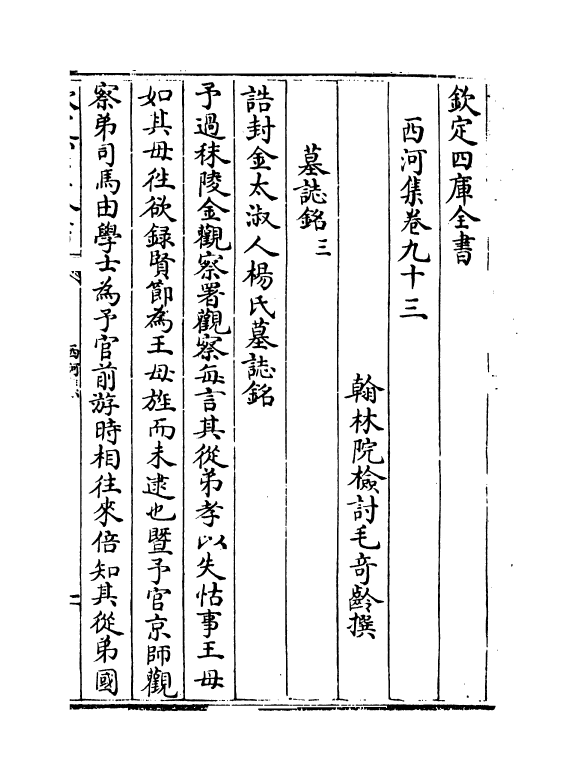 欽定四庫全書
西河集卷九十三
翰林院檢討毛奇齡撰
墓誌銘三
誥封金太淑人楊氏墓誌銘
予過秣陵金觀察署觀察每言其從弟孝以失怙事王母
如其母徃欲録賢節為王母旌而未逮也暨予官京師觀
察弟司馬由學士為予官前游時相往來倍知其從弟國
西河集